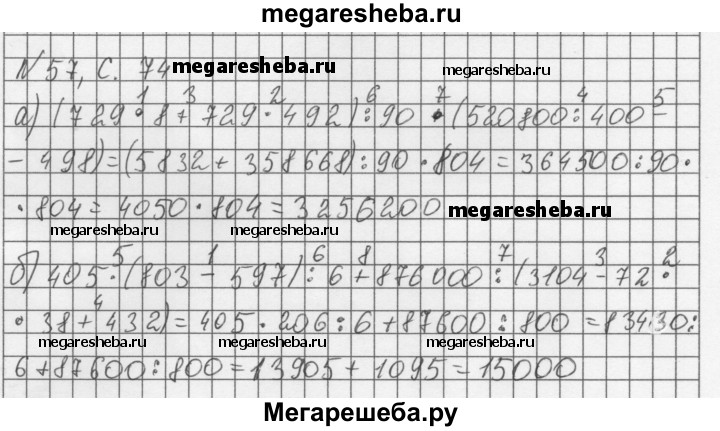 megaresheba.ru
№ 57, С. 74 megaresheba.ru megaresheba.ru
1 3 2 6 7 4 5
а) (729 · 8 + 729 · 492) : 90 · (520800 : 400 −
− 498) = (5832 + 358668) : 90 · 804 = 364500 : 90 ·
· 804 = 4050 · 804 = 3256200 megaresheba.ru
megaresheba.ru megaresheba.ru
5 1 6 8 7 3 2
б) 405 · (803 − 597) : 6 + 876000 : (3104 − 72 ·
4
· 38 + 432) = 405 · 206 : 6 + 87600 : 800 = 83430 :
megaresheba.ru megaresheba.ru megaresheba.ru
6 + 87600 : 800 = 13905 + 1095 = 15000
megaresheba.ru megaresheba.ru
Мегарешеба.ру